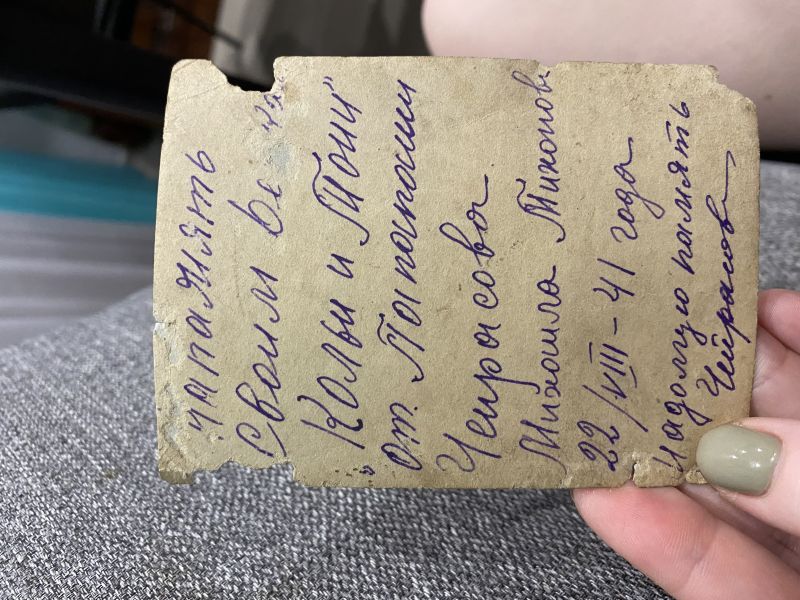 на память
своим
"Кольи и Тони"
от Папаши
Чеирасова
Михаила Тихонов
22/VIII-41 года
на долгую память
Чеирасов